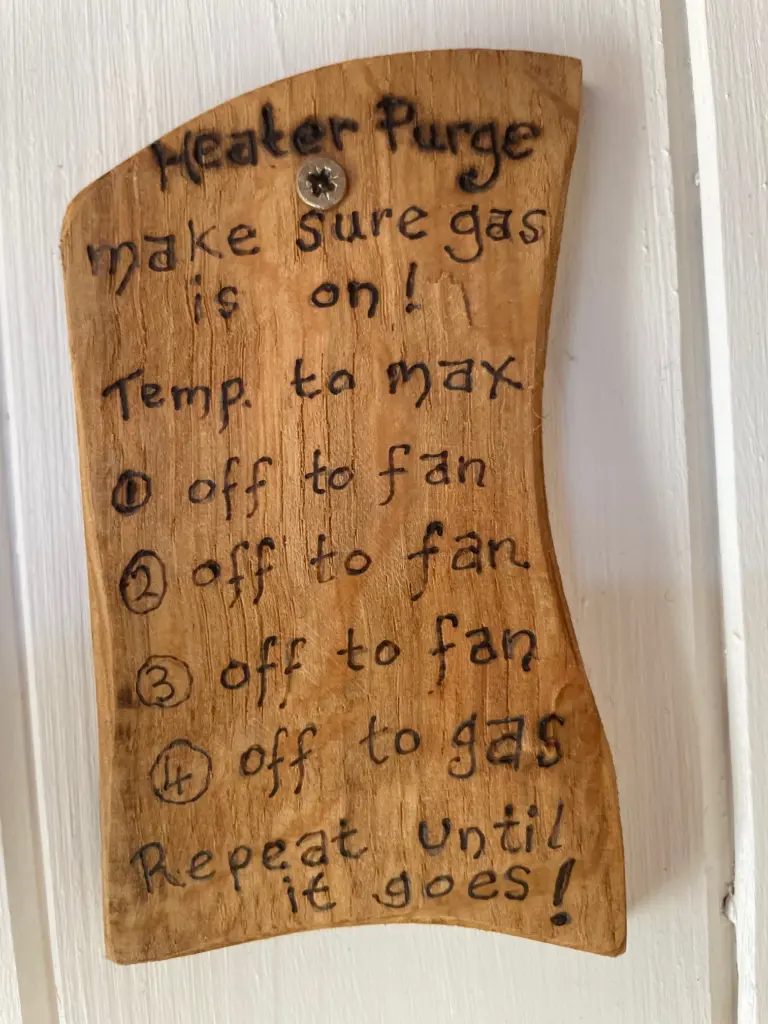 Heater Purge
make sure gas
is on!
Temp. to max
① off to fan
② off to fan
③ off to fan
④ off to gas
Repeat until
it goes!